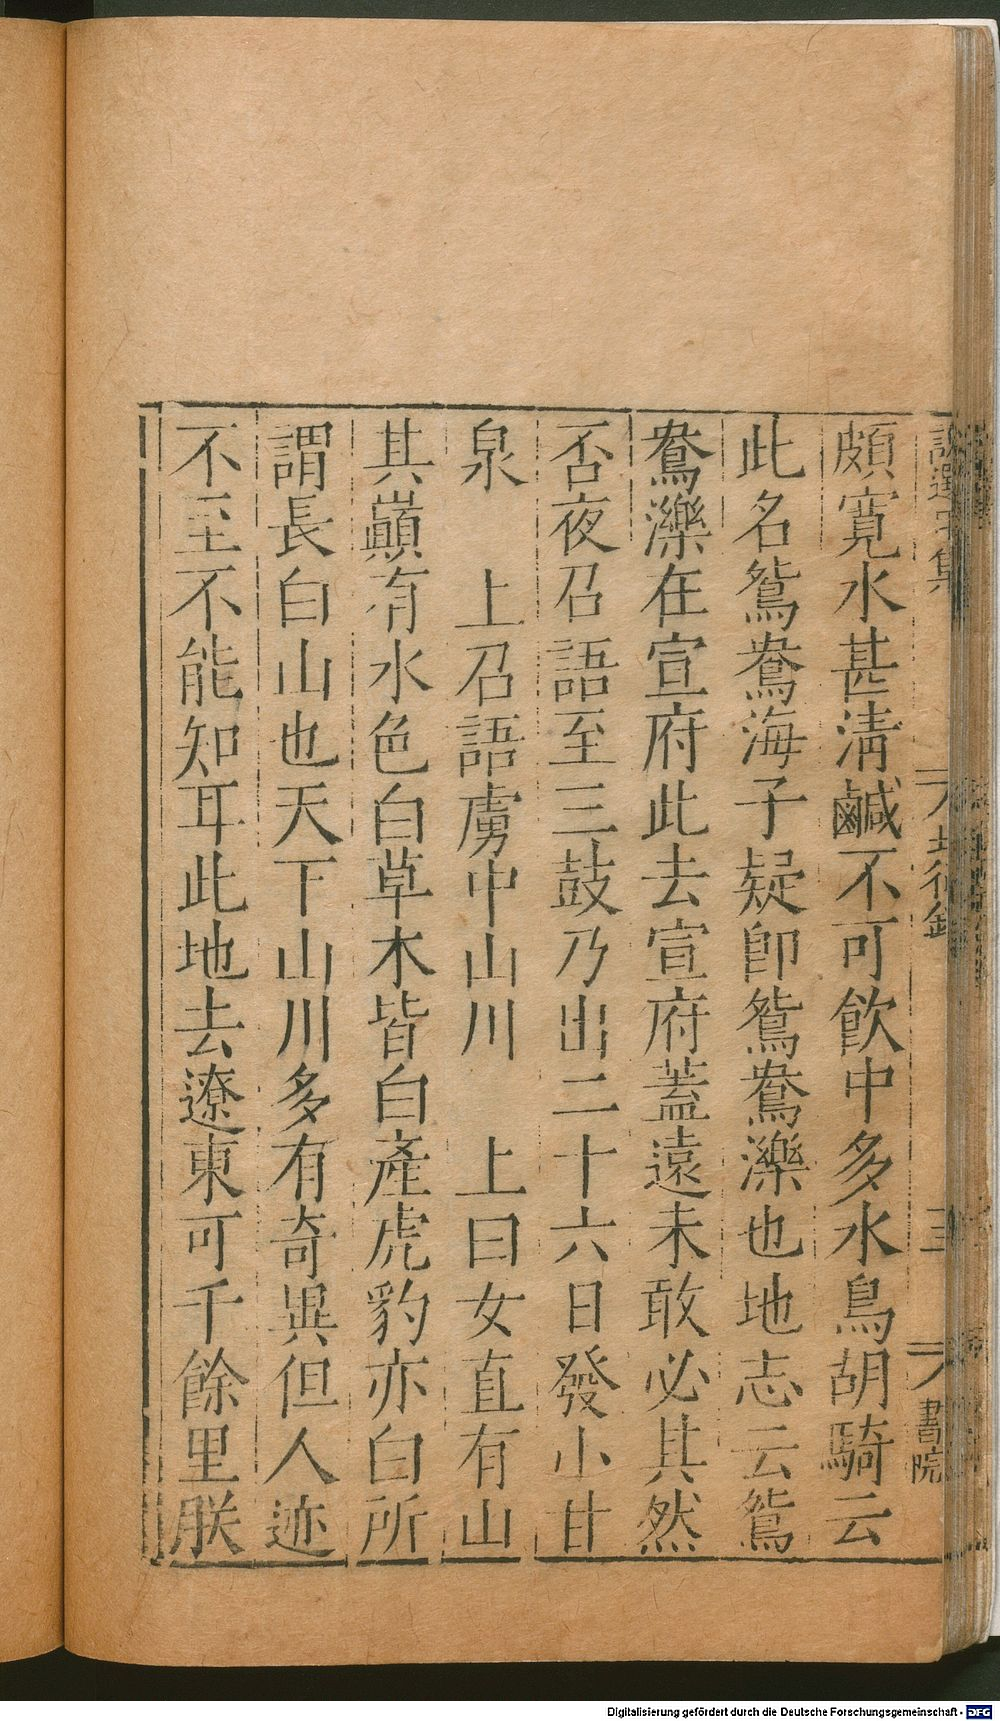 頗寛水甚淸鹹不可飲中多水鳥胡騎云
此名鴛鴦海子疑即鴛鴦濼也地志云鴛
鴦濼在宣府此去宣府蓋遠未敢必其然
否夜召語至三鼓乃出二十六日發小甘
泉　上召語虜中山川　上曰女直有山
其巔有水色白草木皆白產虎豹亦白所
謂長白山也天下山川多有奇異但人迹
不至不能知耳此地去遼東可千餘里朕
三
書院
Digitalisierung gefördert durch die Deutsche Forschungsgemeinschaft - DFG